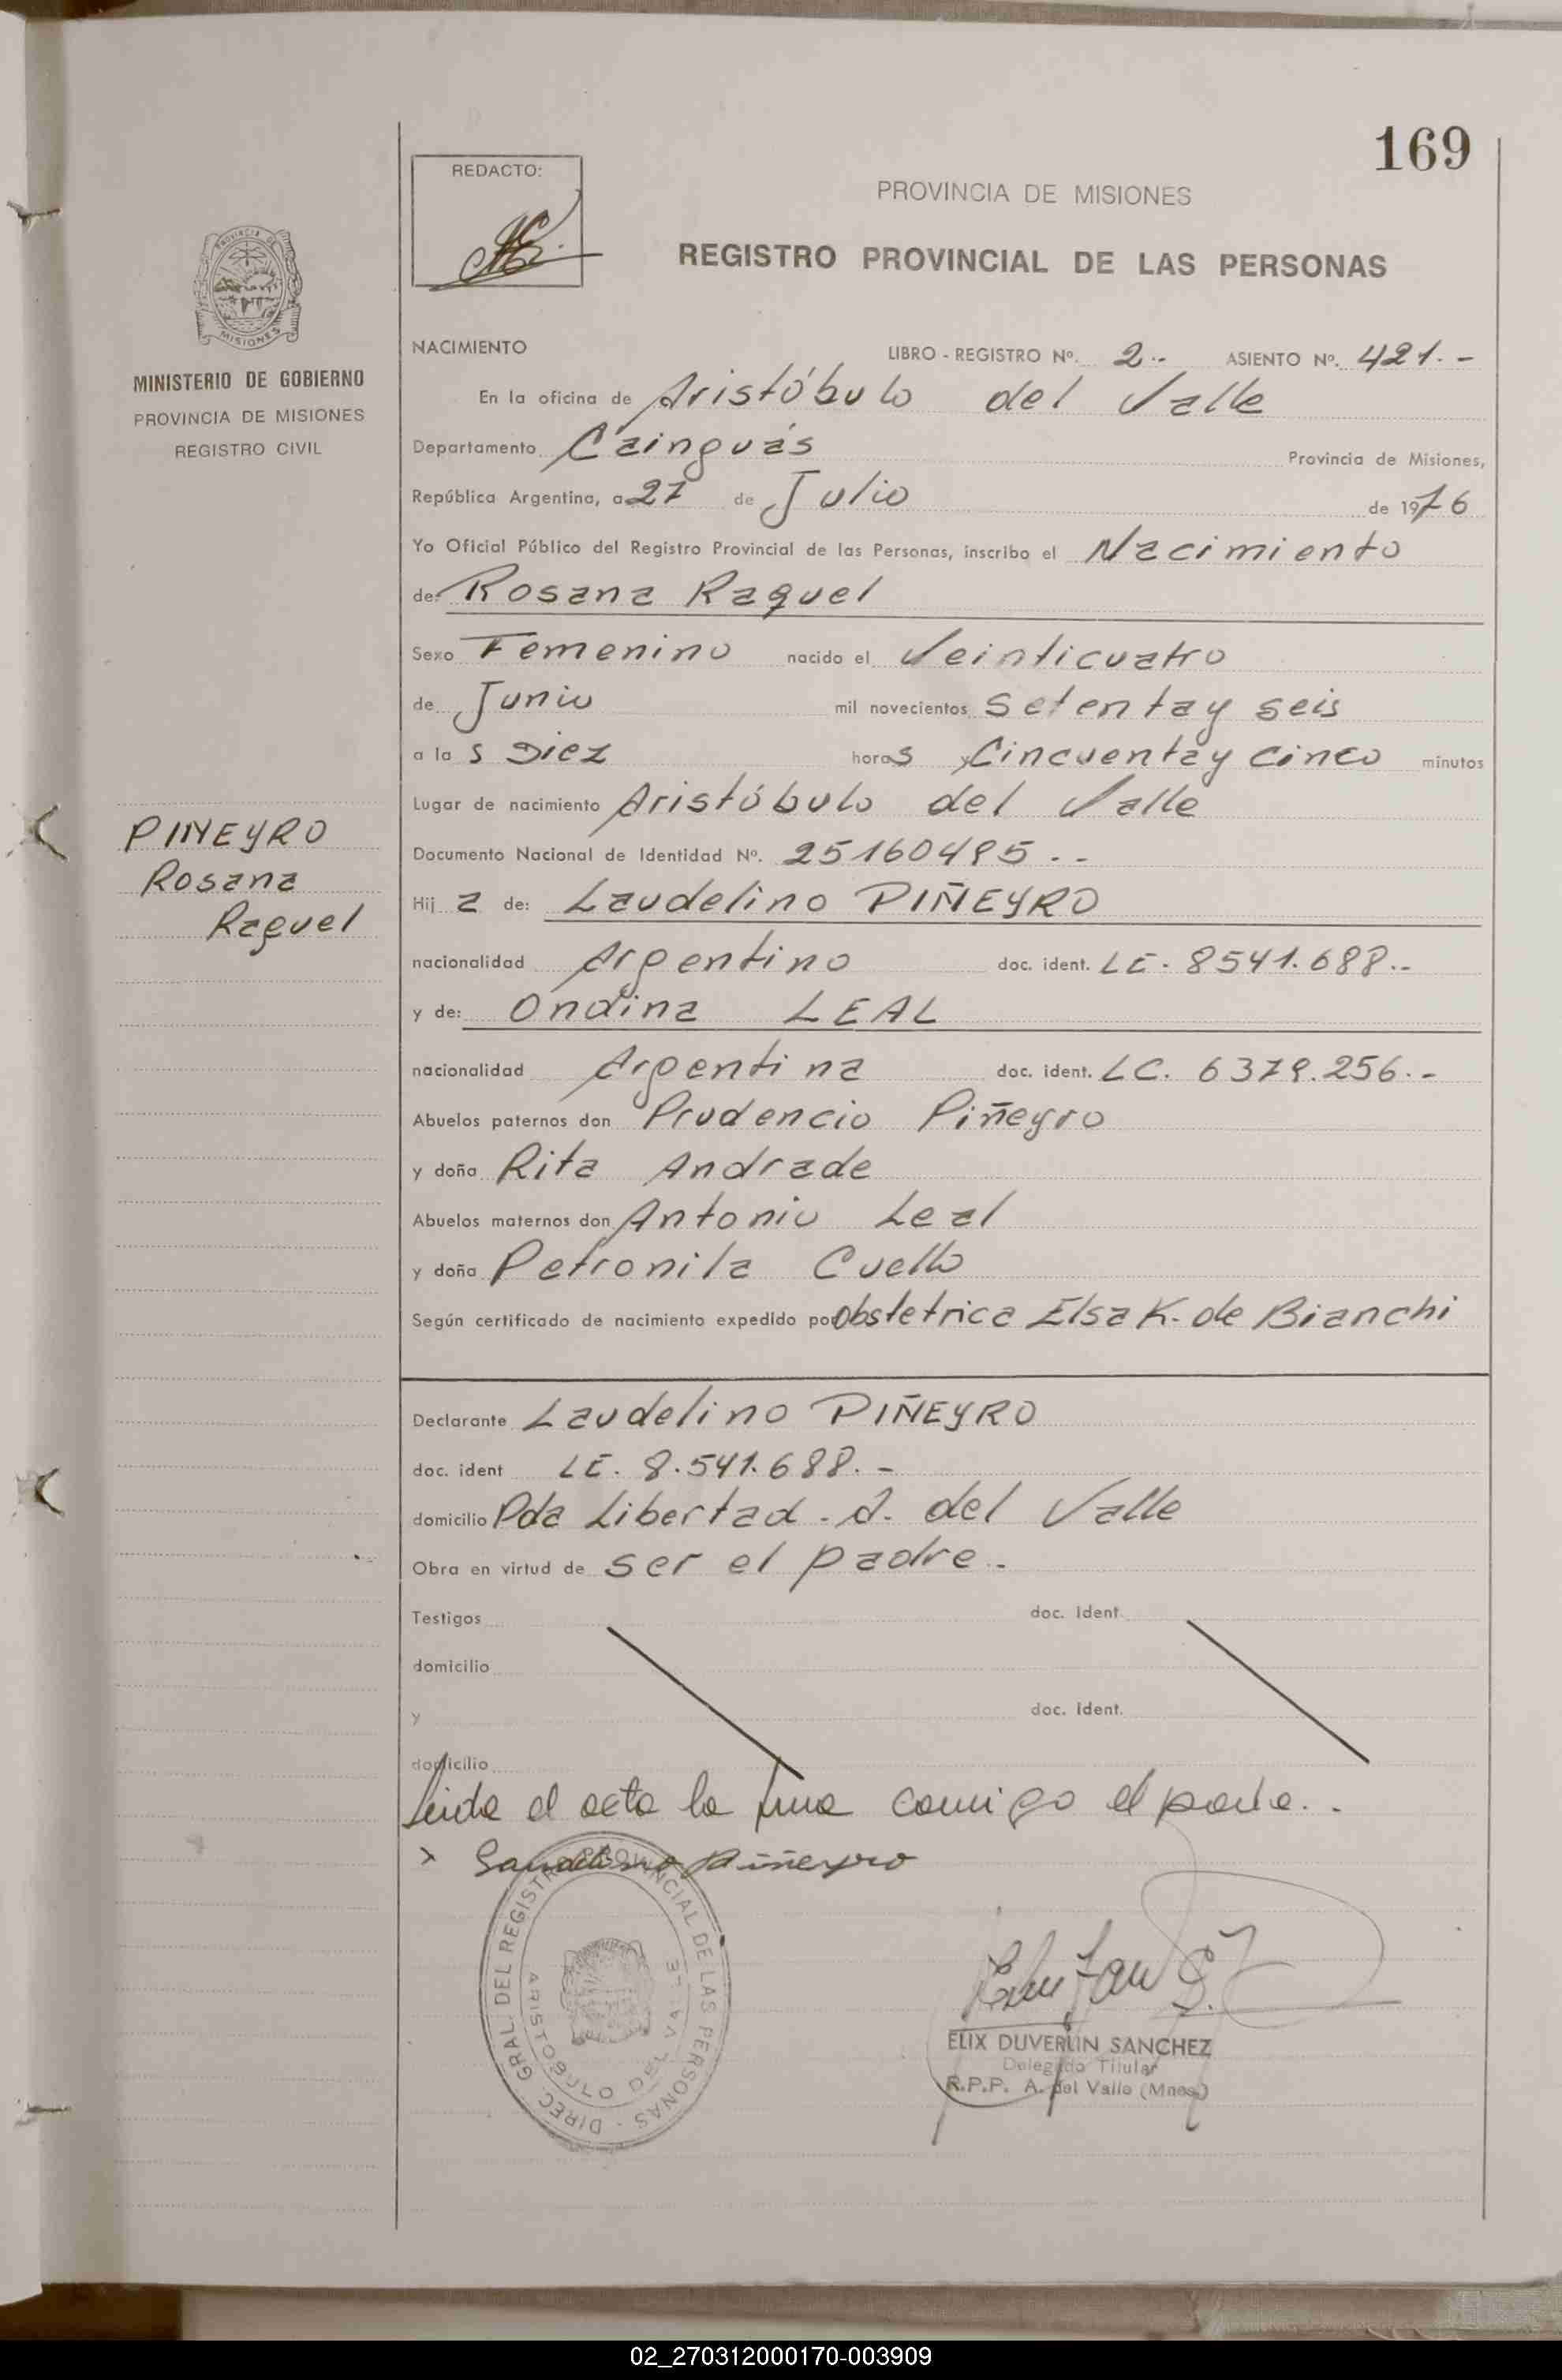 169
REDACTO:
PROVINCIA DE MISIONES
REGISTRO PROVINCIAL DE LAS PERSONAS
PROVINCIA DE
MISIONES
MINISTERIO DE GOBIERNO
PROVINCIA DE MISIONES
REGISTRO CIVIL
NACIMIENTO
LIBRO - REGISTRO Nº. 2.- ASIENTO Nº. 421.-
En la oficina de Aristóbulo del Valle
Departamento Cainguás Provincia de Misiones,
República Argentina, a 27 de Julio de 1976
Yo Oficial Público del Registro Provincial de las Personas, inscribo el Nacimiento
de: Rosana Raquel
Sexo Femenino nacido el Veinticuatro
de Junio mil novecientos setenta y seis
a las Diez horas y Cincuenta y cinco minutos
Lugar de nacimiento Aristóbulo del Valle
PIÑEYRO
Rosana
Raquel
Documento Nacional de Identidad Nº. 25160495.-
Hija de: Laudelino PIÑEYRO
nacionalidad Argentino doc. ident. LE. 8541.688.-
y de: Ondina LEAL
nacionalidad Argentina doc. ident. LC. 6379.256.-
Abuelos paternos don Prudencio Piñeyro
y doña Rita Andrade
Abuelos maternos don Antonio Leal
y doña Petronila Cuello
Según certificado de nacimiento expedido por Obstetrica Elsa K. de Bianchi
Declarante Laudelino PIÑEYRO
doc. ident LE. 8.541.688.-
domicilio Pda Libertad - A. del Valle
Obra en virtud de ser el padre.-
Testigos doc. ident.
domicilio
y doc. ident.
domicilio
Leida el acta la firma conmigo el padre.-
x Laudelino Piñeyro
DIREC. GRAL. DEL REGISTRO PROVINCIAL DE LAS PERSONAS -
ARISTOBULO DEL VALLE
ELIX DUVERLIN SANCHEZ
Delegado Titular
R.P.P. A. del Valle (Mnes)
02_270312000170-003909